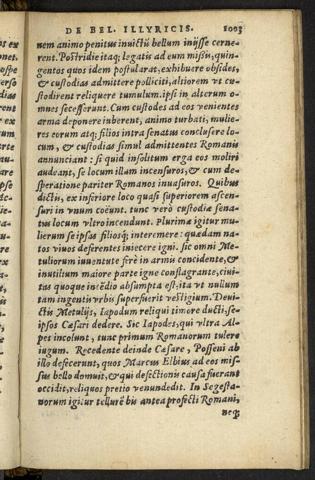 DE BEL. ILLYRICIS. 1003
nem animo penitus inuictũ bellum inijsse cerne-
rent. Postridie itaq; legatis ad eum missis, quin-
gentos quos idem postularat, exhibuere obsides,
& custodias admittere polliciti, altiorem vt cu-
stodirent reliquere tumulum. ipsi in alterum o-
mnes secesserunt. Cum custodes ad eos venientes
arma deponere iuberent, animo turbati, mulie-
res eorum atq; filios intra senatus conclusere lo-
cum, & custodias simul admittentes Romanis
annunciant: si quid insolitum erga eos moliri
audeant, se locum illam incensuros, & cum de-
speratione pariter Romanos inuasuros. Quibus
dictis, ex inferiore loco quasi superiorem ascen-
suri in vnum coëunt. tunc verò custodiæ sena-
tus locum vltro incendunt. Plurimæ igitur mu-
lierum se ipsas filiosq; interemere: quædam na-
tos viuos deferentes iniecere igni. sic omni Me-
tuliorum iuuentute ferè in armis concidente, &
inutilium maiore parte igne conflagrante, ciui-
tas quoque incẽdio absumpta est, ita vt nullum
tam ingentis vrbis superfuerit vestigium. Deui-
ctis Metulijs, Iapodum reliqui timore ducti, se-
ipsos Cæsari dedere. Sic Iapodes, qui vltra Al-
pes incolunt, tunc primum Romanorum tulere
iugum. Recedente deinde Cæsare, Posseni ab
illo defecerunt, quos Marcus Elbius ad eos mis-
sus bello domuit, & qui defectionis causa fuerant
occidit, reliquos pretio venundedit. In Segesta-
norum igitur tellurẽ bis antea profecti Romani,
neq;